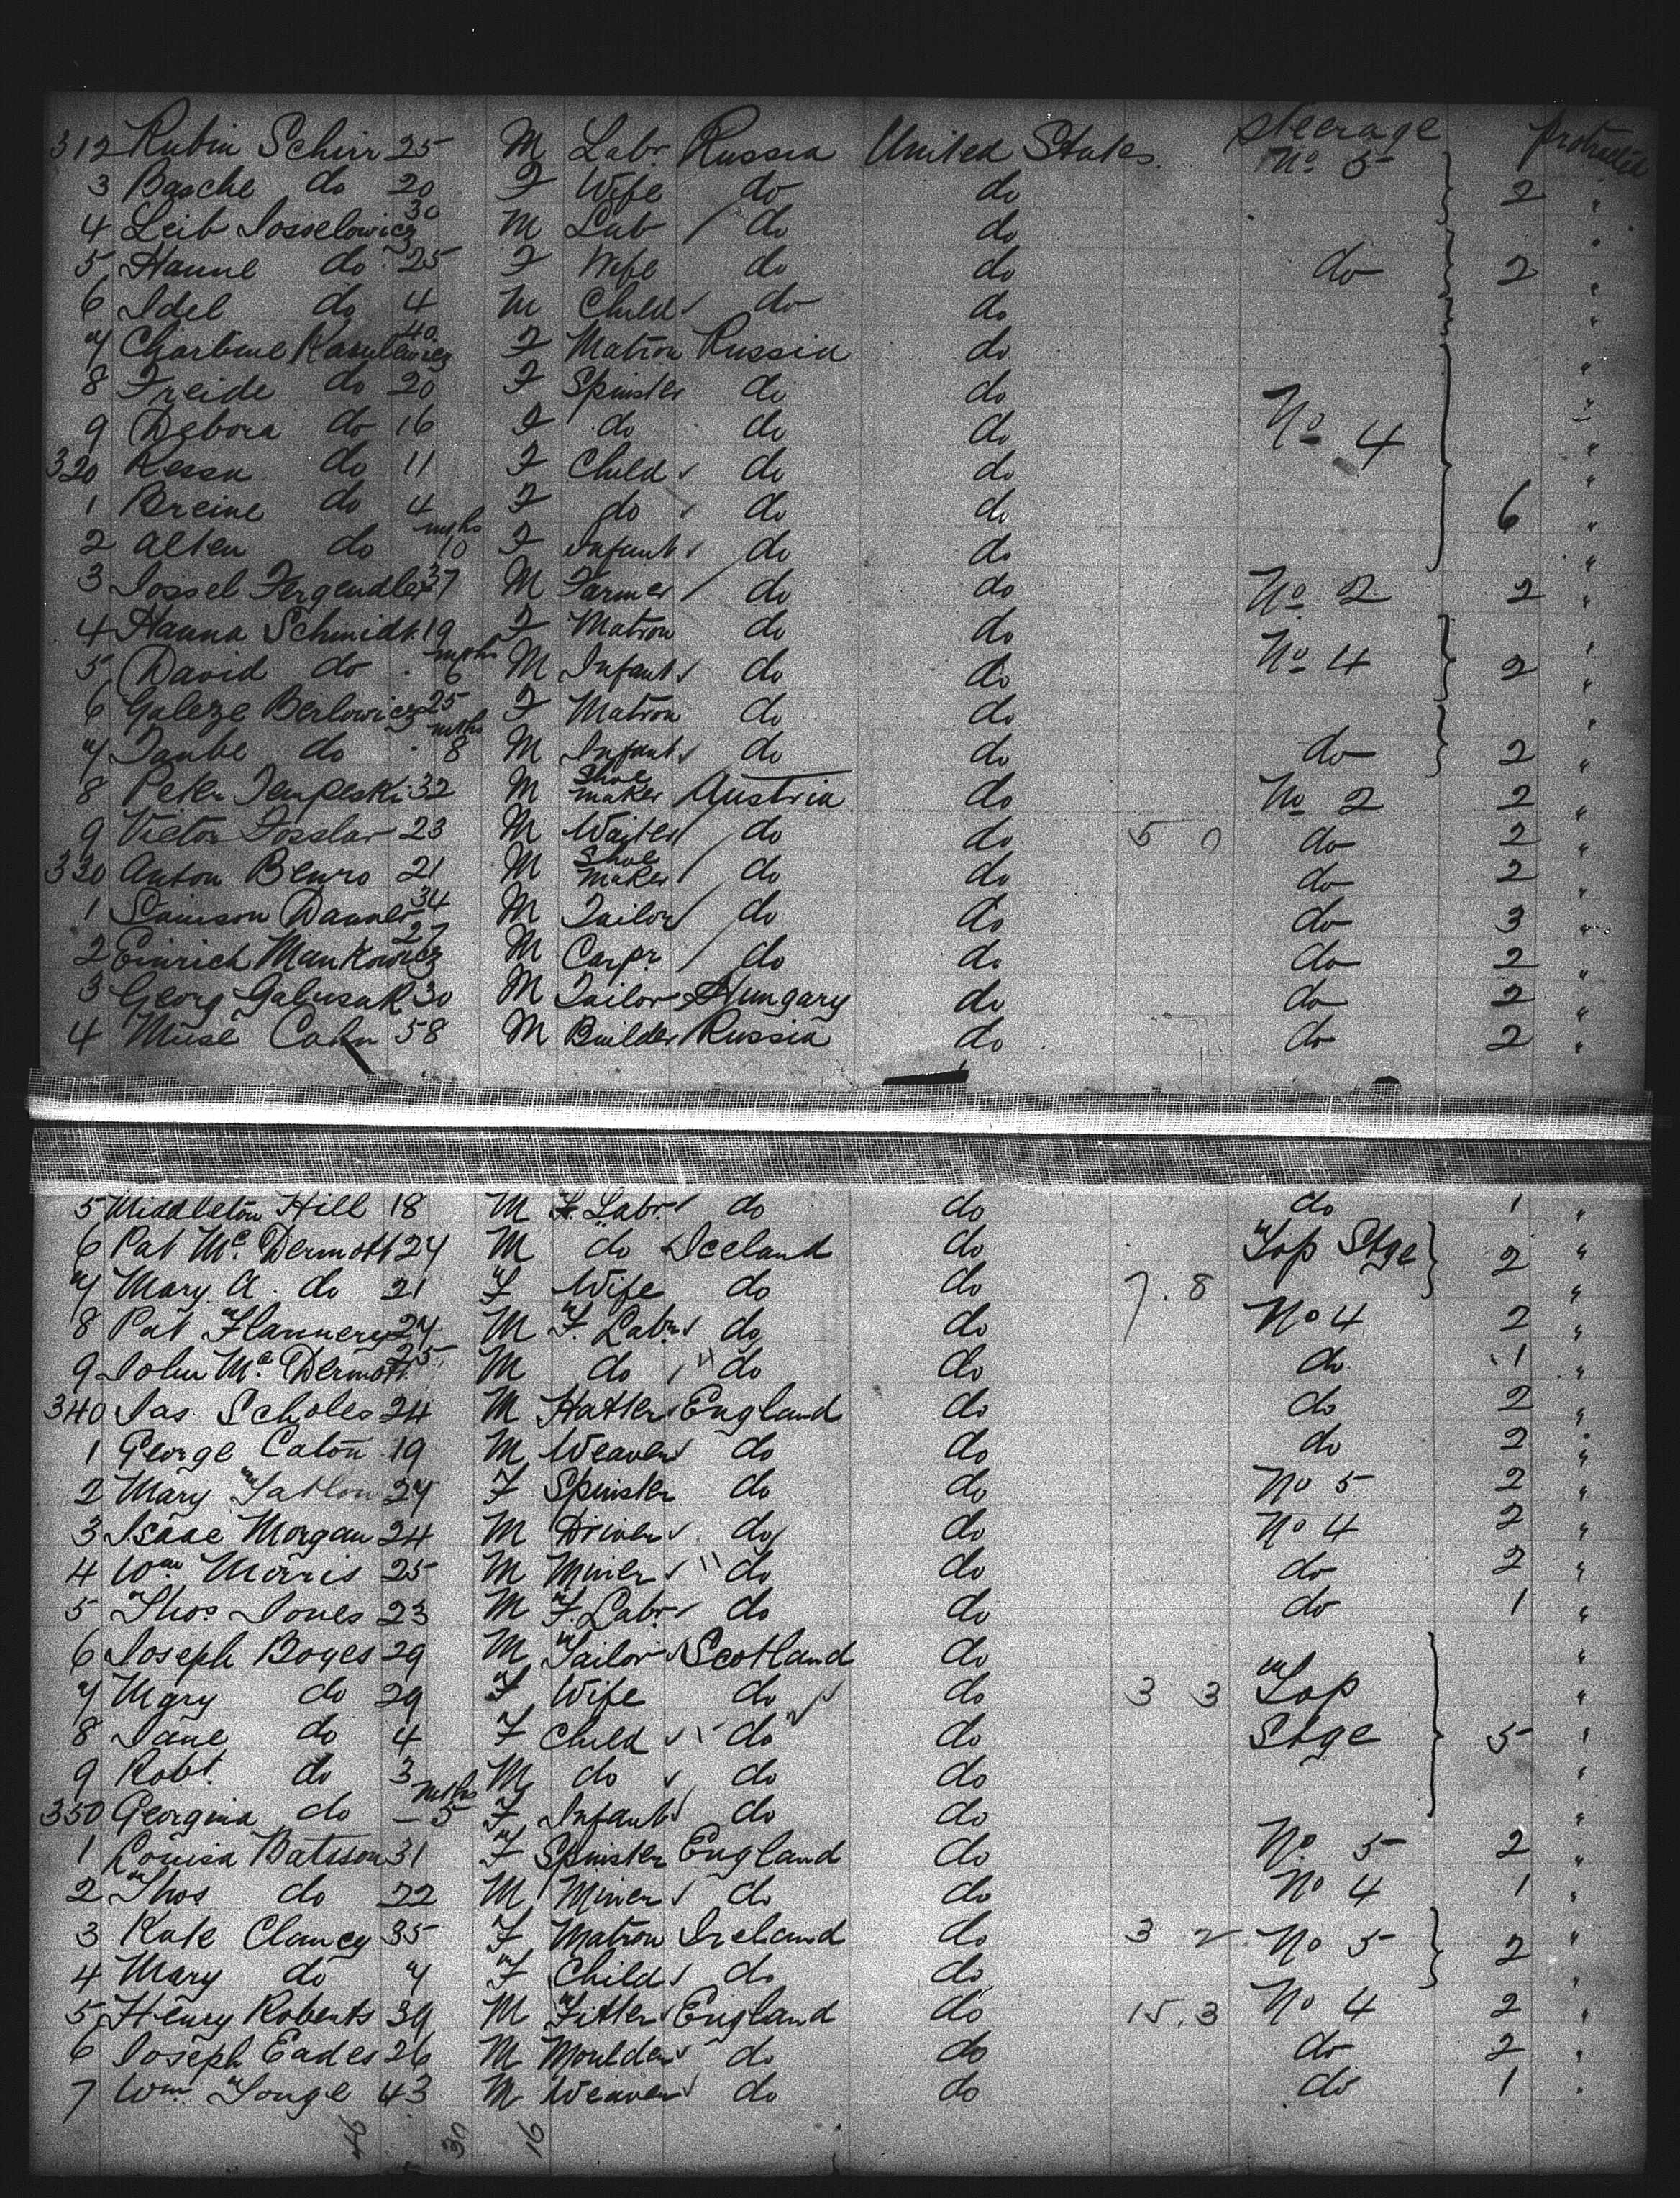 312 Rubin Schirr 25 M Labr. Russia United States Steerage No 5 protracted
3 Basche do 20 F Wife do do 2 "
4 Leib Josselowicz 30 M Lab / do do "
5 Hanne do 25 F Wife do do do 2 "
6 Idel do 4 M Child do do "
7 40 F Matron Russia do "
8 Freide do 20 F Spinster do do No 4 "
9 Debora do 16 F do do do "
320 Ressa do 11 F Child do do "
1 Breine do 4 F do do do 6 "
2 Alten do mths 10 F Infant do do "
3 Jossel Fergendler 37 M Farmer / do do No 2 2 "
4 Hanna Schmidt 19 F Matron do do No 4 "
5 David do mths 6 M Infant do do 2 "
6 Galeze Berlowicz 25 F Matron do do "
7 Taube do mths 8 M Infant do do do 2 "
8 Peter Tempeski 32 M Shoe maker Austria do No 2 2 "
9 Victor Fosslar 23 M Waiter / do do 5 0 do 2 "
330 Anton Benro 21 M Shoe maker / do do do 2 "
1 Samson Danner 34 M Tailor / do do do 3 "
2 Einrich Mankowicz 27 M Carpr. / do do do 2 "
3 Georg Galusak 30 M Tailor Hungary do do 2 "
4 Muse Cahn 58 M Builder Russia do do 2 "
5 Middleton Hill 18 M F. Labr. do do do 1 "
6 Pat Mc Dermott 24 M do Iceland do Top Stge 2 "
7 Mary A. do 21 F Wife do do 7.8 "
8 Pat Flannery 27 M F. Labr do do No 4 2 "
9 John Mc Dermott 25 M do " do do do 1 "
340 Jas. Scholes 24 M Hatter England do do 2 "
1 George Caton 19 M Weaver do do do 2 "
2 Mary Tatlow 27 F Spinster do do No 5 2 "
3 Isaac Morgan 24 M Driver do do No 4 2 "
4 Wm Morris 25 M Miner " do do do 2 "
5 Thos. Jones 23 M F. Labr do do do 1 "
6 Joseph Boyes 29 M Tailor Scotland do "
7 Mary do 29 F Wife do do 3 3 Top "
8 Jane do 4 F Child do do Stge 5 "
9 Robt. do 3 M do do do "
350 Georgina do mths 5 F Infant do do "
1 Louisa Batsson 31 F Spinster England do No 5 2 "
2 Thos do 22 M Miner do do No 4 1 "
3 Kate Clancy 35 F Matron Ireland do 3 2 No 5 2 "
4 Mary do 7 F Child do do "
5 Henry Roberts 39 M Fitter England do 15.3 No 4 2 "
6 Joseph Eades 26 M Moulder do do do 2 "
7 Wm. Tonge 43 M Weaver do do do 1 "
30 16